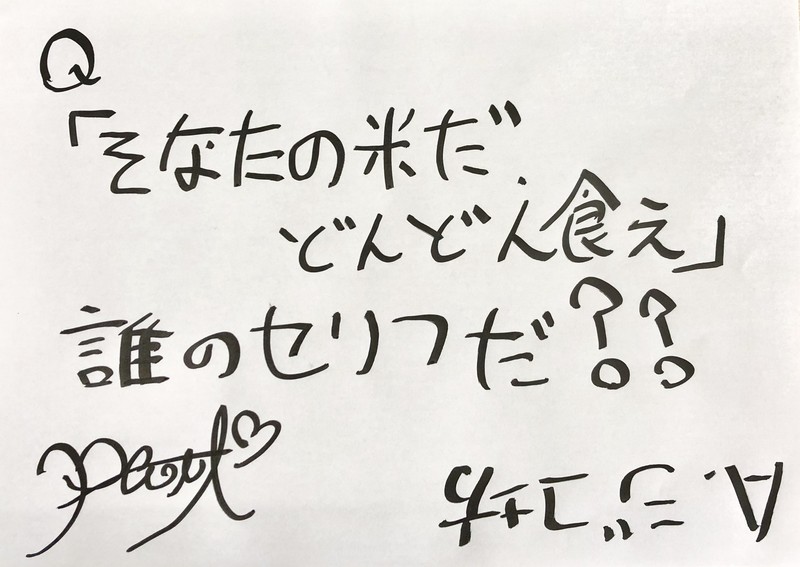 Q
「そなたの米だ、
どんどん食え」
誰のセリフだ??
A.ジコ坊